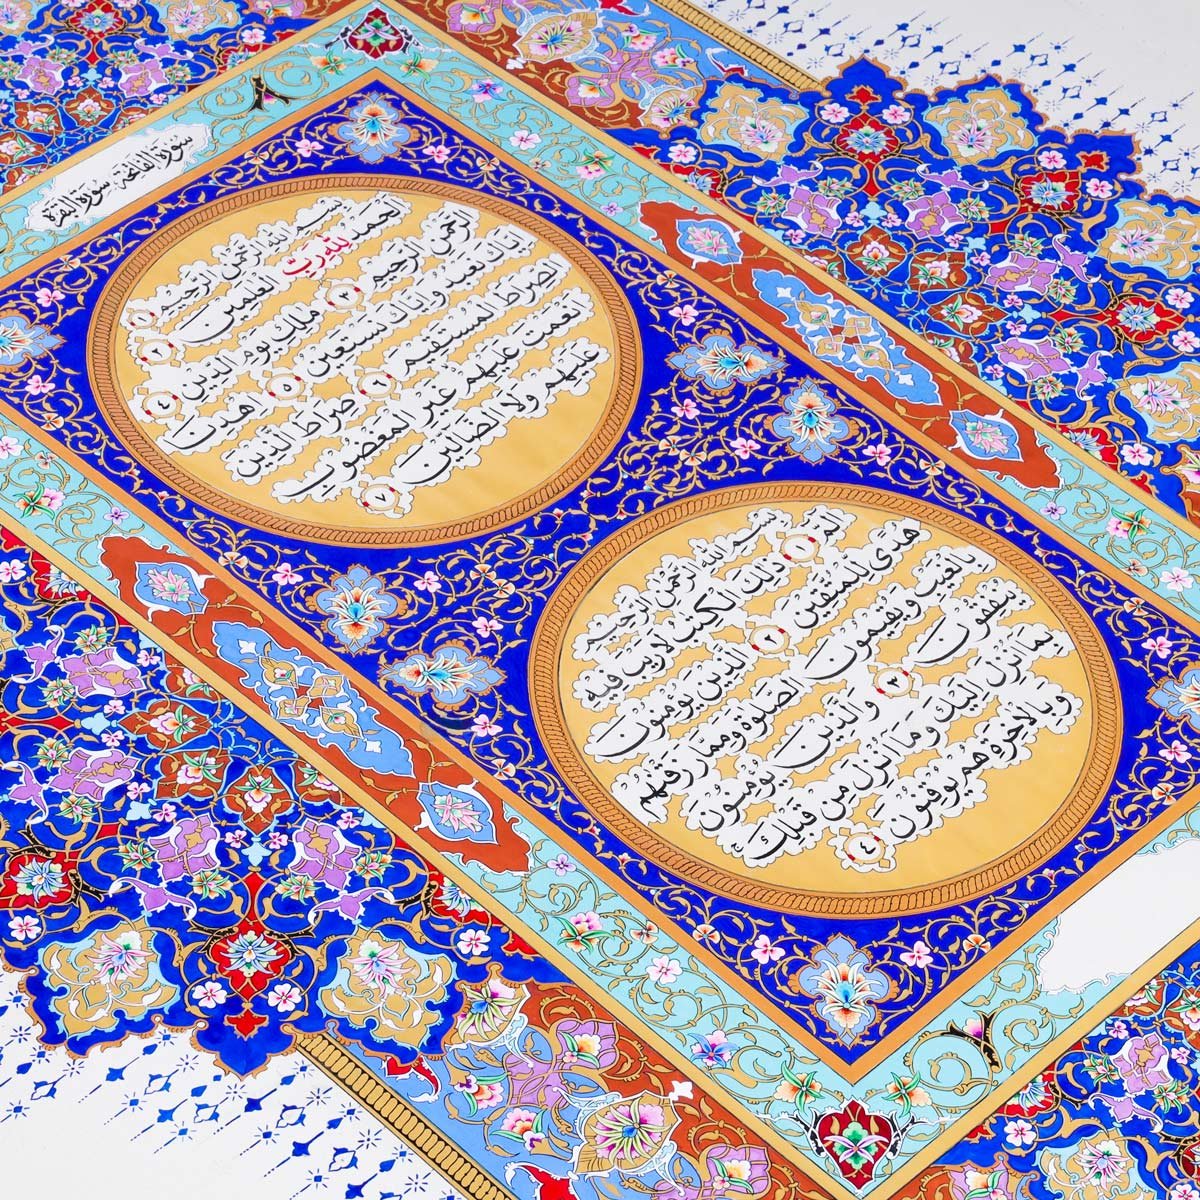 سورة الفاتحة سورة البقرة
بسم الله الرحمن الرحیم ١
الحمد لله رب العلمین ٢
الرحمن الرحیم ٣ ملك یوم الدین ٤
ایاك نعبد وایاك نستعین ٥ اهدنا
الصراط المستقیم ٦ صراط الذین
انعمت علیهم غیر المغضوب
علیهم ولا الضالین ٧
بسم الله الرحمن الرحیم
الم ١ ذلك الكتب لا ریب فیه
هدی للمتقین ٢ الذین یؤمنون
بالغیب ویقیمون الصلوة ومما رزقنهم
ینفقون ٣ والذین یؤمنون
بما انزل الیك وما انزل من قبلك
وبالاخرة هم یوقنون ٤